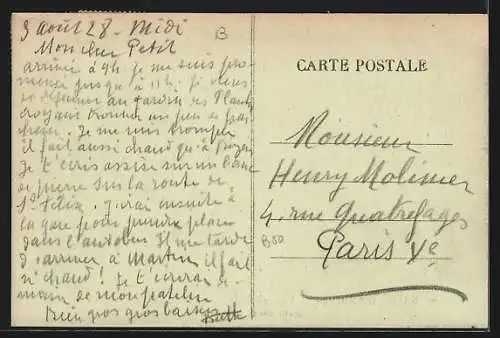 3 août 28 - Midi
Mon cher Petit
arrivée à 9h je me suis pro-
menée jusqu'à 11h. Je viens
de déjeuner au Jardin des Plantes
croyant trouver un peu de fraî
cheur. Je me suis trompée
il fait aussi chaud qu'à
Je t'écris assise sur un banc
de pierre sur la route de
St Félix. J'irai ensuite à
la gare pour prendre place
dans l'autobus. Il me tarde
d'arriver à Martin il fait
si chaud! Je t'écrirai de-
main de mon patelin
Bien gros gros baisers
B
CARTE POSTALE
Monsieur
Henry Molinier
4, rue Quatrefages
Paris Ve
B50